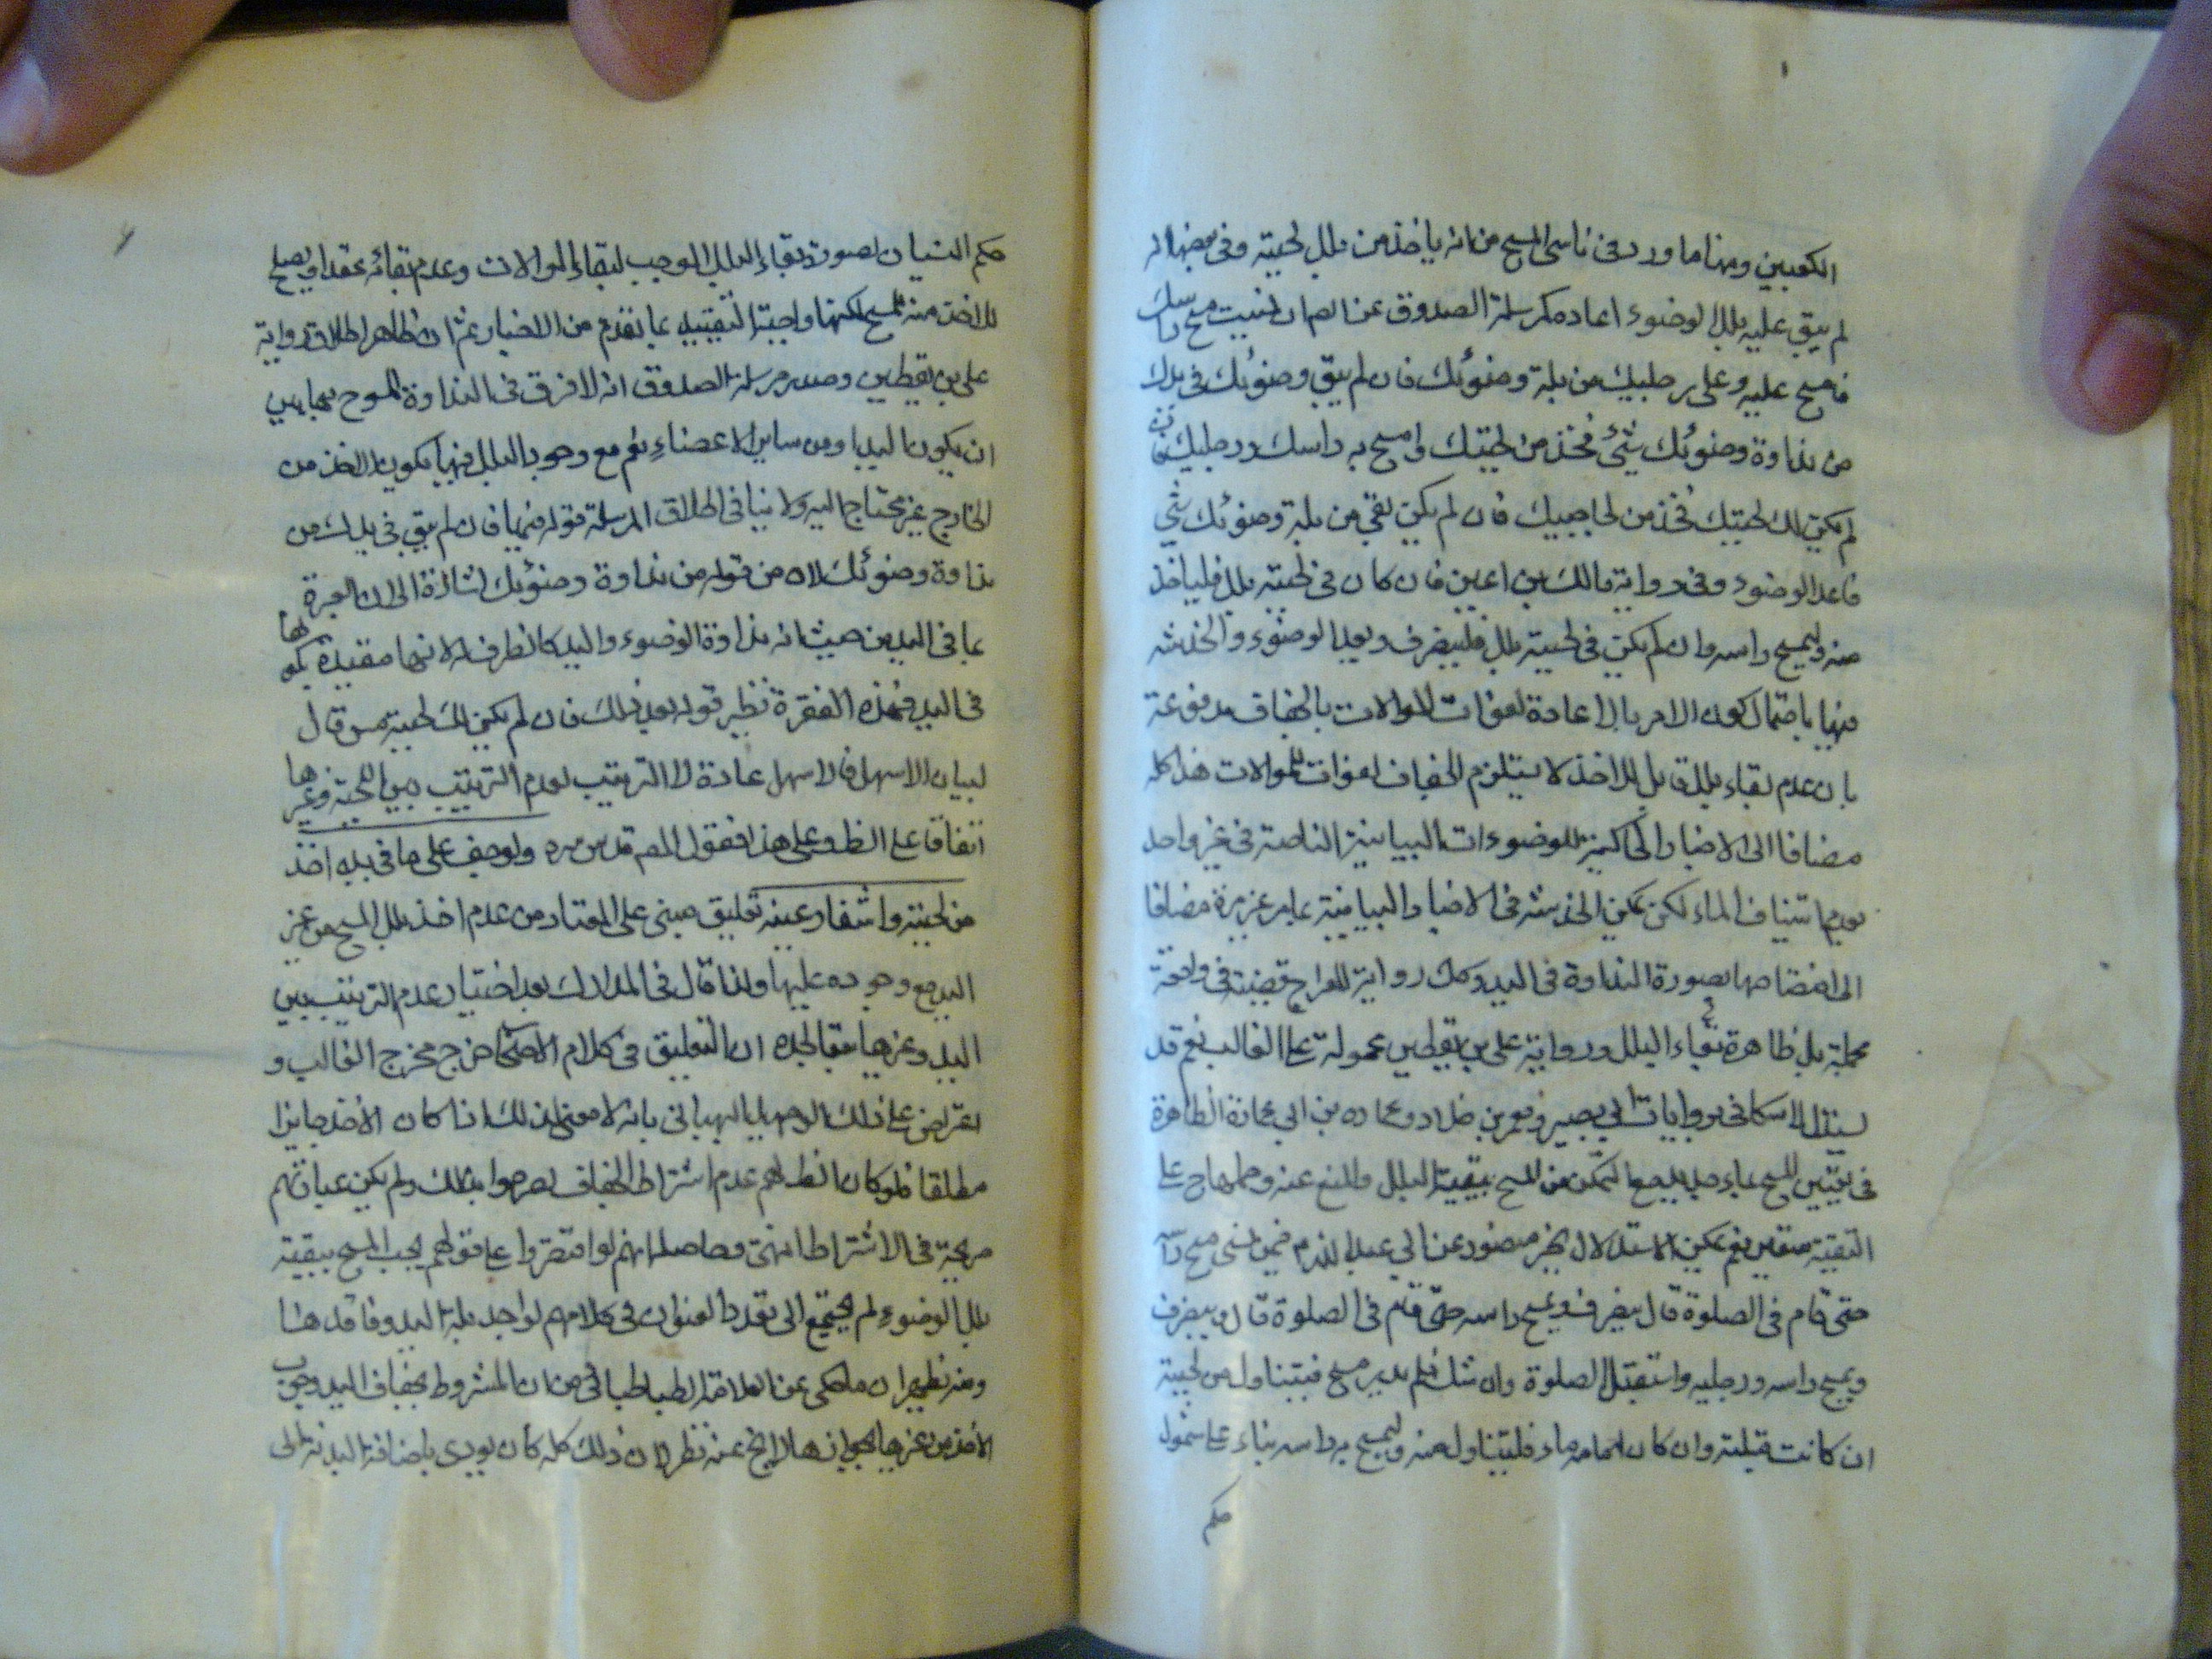 الكعبين ومنها ما ورد فى ناسى المسح من انه ياخذ من بلل لحيته وفى بعضها انه
لم يبق عليه بلل الوضوء اعاده كمرسلة الصدوق عن الصم ان نسيت مسح راسك
فامسح عليه وعلى رجليك من بلة وضوئك فان لم يبق وضوئك فى يدك
من نداوة وضوئك شئ فخذ من لحيتك وامسح به راسك ورجليك فان
لم يكن لك لحيتك فخذ من حاجبيك فان لم يكن بقى من بلة وضوئك شئ
فاعد الوضوء وفى رواية مالك بن اعين فان كان فى لحيته بلل فلياخذ
منه وليمسح راسه وان لم يكن فى لحيته بلل فلينصرف ويعيد الوضوء والخدشه
فيها باحتمال كون الامر بالاعادة لفوات الموالات بالجفاف مدفوعة
بان عدم بقاء بلل قابل للاخذ لا يستلزم الجفاف لفوات الموالات هذا كله
مضافا الى الاخبار الحاكية للوضوءات البيانية الناصة فى غير واحد
بعدم استيناف الماء لكن يمكن الخدشه فى الاخبار البيانية بما مر غير مرة مضافا
الى اختصاصها بصورة النداوة فى اليد وكك رواية المعراج قضية فى واقعة
مجملة بل ظاهرة بقاء البلل ورواية على بن يقطين محمولة على الغالب نعم قد
يستدل للاسكافى بروايات ابى بصير ومعمر بن خلاد وعماره بن ابى عمارة الظاهرة
فى تعيين المسح بماء جديد مع التمكن من المسح ببقية البلل والمنع عنه وحملها ح على
التقية متعين نعم يمكن الاستدلال بخبر منصور عن ابى عبد الله م فيمن نسى مسح راسه
حتى قام فى الصلوة قال ينصرف ويمسح راسه حتى قام فى الصلوة قال ينصرف
ويمسح راسه ورجليه واستقبل الصلوة وان شك فلم يدر مسح فيتناول من لحيته
ان كانت مبتلة وان كان امامه ماء فليتناول منه وليمسح به راسه بناء على شمول
حكم
حكم النسيان لصورة بقاء البلل الموجب لبقاء الموالات وعدم بقائه بمقدار يصلح
للاخذ منه للمسح لكنها واجبة التقييد بما تقدم من الاخبار ثم ان ظاهر اطلاق رواية
على بن يقطين وصدر مرسلة الصدوق انه لا فرق فى النداوة الممسوح بها بين
ان يكون ما اليد او من ساير الاعضاء نعم مع وجود البلل فيها يكون الاخذ من
الخارج غير محتاج اليه ولا ينافى اطلاق المرسلة قوله فيها فان لم يبق فى يدك من
نداوة وضوئك لان من قوله من نداوة وضوئك اشارة الى ان العبرة
بما فى اليد من حيث انه نداوة الوضوء واليد كالظرف له لا انها مقيدة بكونها
فى اليد فهذه الفقرة نظير قوله بعد ذلك فان لم يكن لك لحية قال
لبيان الاسهل فالاسهل عادة لا الترتيب لعدم الترتيب بين اللحية وغيرها
اتفاقا على الظ وعلى هذا فقول المصم قدس سره ولو جف على ما فى يديه اخذ
من لحيته واشفار عينيه تعليق مبنى على المعتاد من عدم اخذ بلل المسح من غير
اليد مع وجوده عليها ولذا قال فى المدارك بعد اختيار عدم الترتيب بين
اليد وغيرها تبعا لجده ان التعليق فى كلام الاصحاب خرج مخرج الغالب و
اعترض على ذلك الوحيد البهبهانى بانه لا معنى لذلك اذا كان الاخذ جايزا
مطلقا فلو كان نظرهم عدم اشتراط الجفاف لصرحوا بذلك ولم يكن عباراتهم
صريحة فى الاشتراط انتهى وحاصله انهم لو اقتصروا على قولهم يجب المسح ببقية
بلل الوضوء لم يحتج الى تعدد العنوان فى كلامهم لواجد بلة اليد وفاقدها
ومنه يظهر ان ما حكى عن العلامة الطباطبائى من ان المشروط بجفاف اليد وجوب
الاخذ من غيرها لا جوازه لا يخ عن نظر لان ذلك كله كان يؤدى باضافة اليد الى